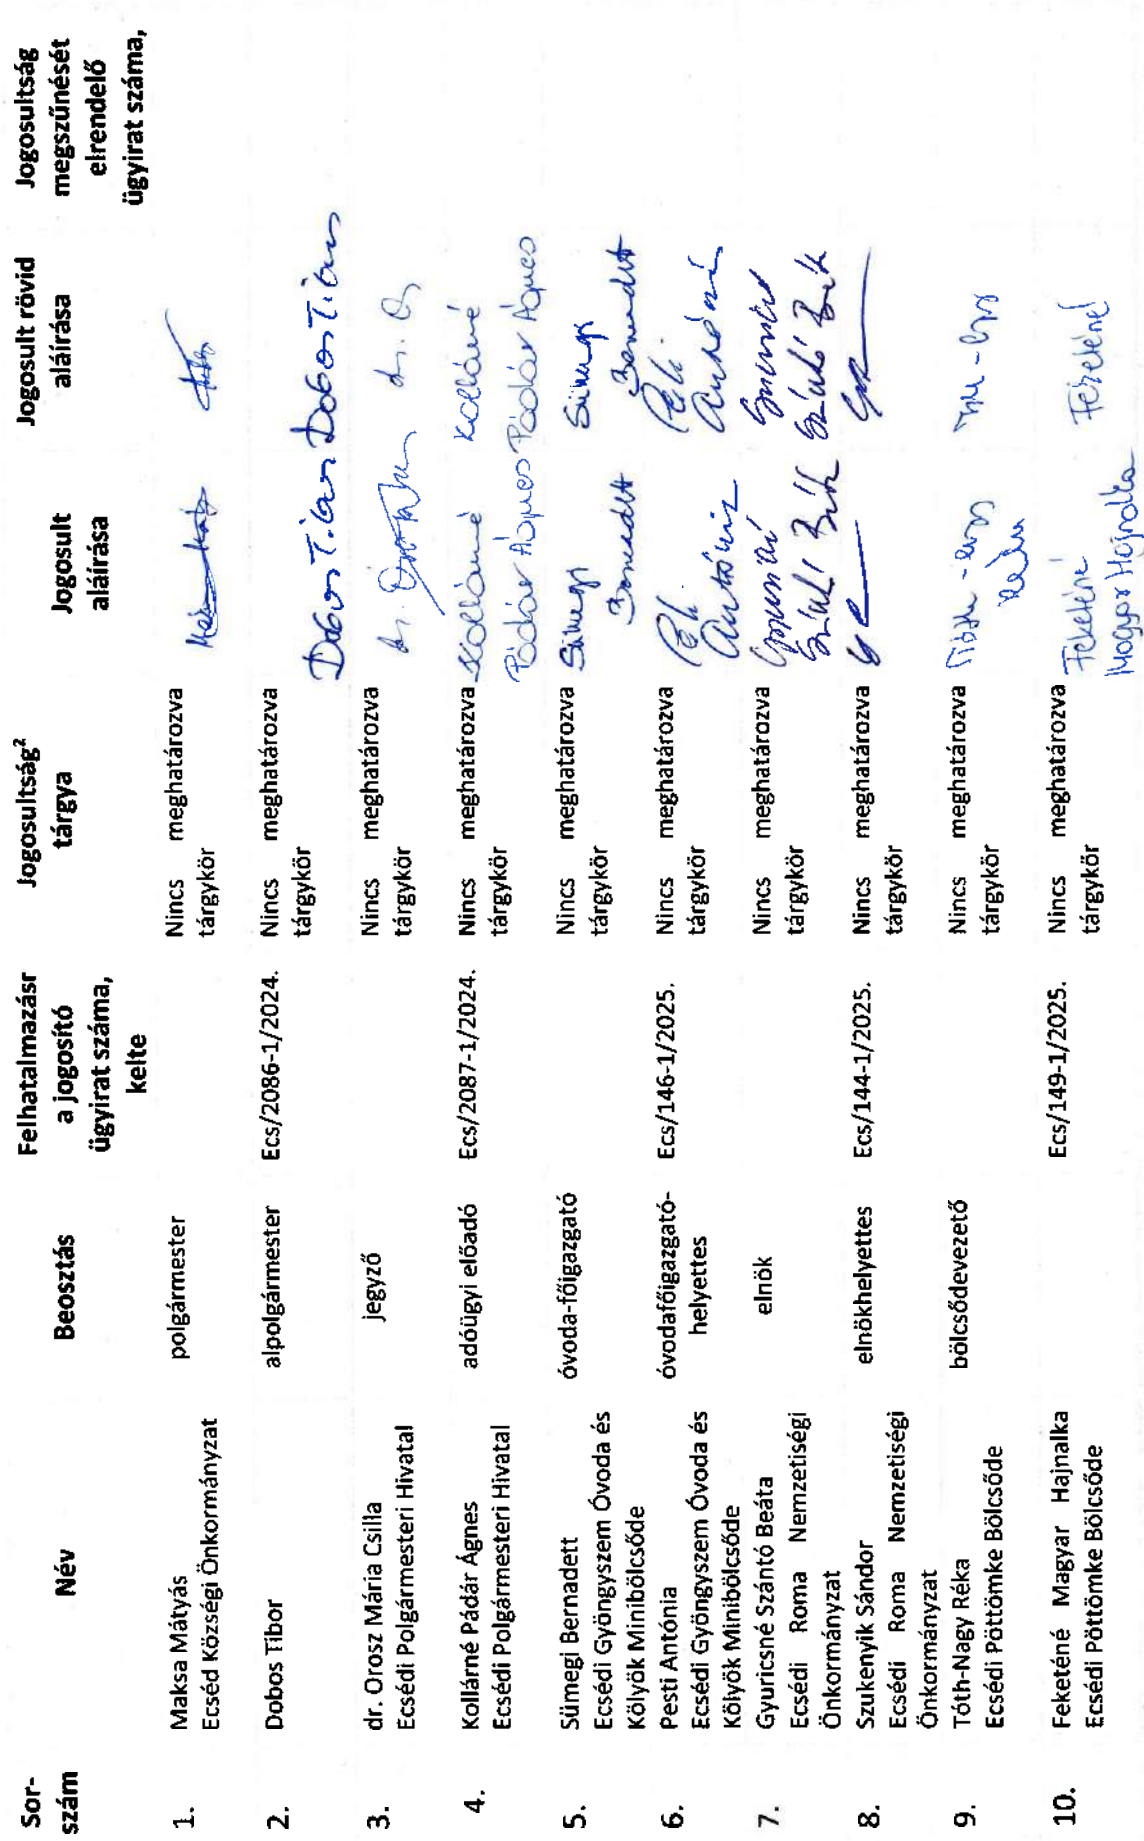 Sor-
szám
Név
Beosztás
Felhatalmazásr
a jogosító
ügyirat száma,
kelte
Jogosultság²
tárgya
Jogosult
aláírása
Jogosult rövid
aláírása
Jogosultság
megszűnését
elrendelő
ügyirat száma,
1.
Maksa Mátyás
Ecséd Községi Önkormányzat
polgármester
Nincs meghatározva
tárgykör
2.
Dobos Tibor
alpolgármester
Ecs/2086-1/2024.
Nincs meghatározva
tárgykör
Dobos Tibor
Dobos Tibor
3.
dr. Orosz Mária Csilla
Ecsédi Polgármesteri Hivatal
jegyző
Nincs meghatározva
tárgykör
4.
Kollárné Pádár Ágnes
Ecsédi Polgármesteri Hivatal
adóügyi előadó
Ecs/2087-1/2024.
Nincs meghatározva
tárgykör
Kollárné
Pádár Ágnes
Kollárné
Pádár Ágnes
5.
Sümegi Bernadett
Ecsédi Gyöngyszem Óvoda és
Kölyök Minibölcsőde
óvoda-főigazgató
Nincs meghatározva
tárgykör
Sümegi
Bernadett
Sümegi
Bernadett
6.
Pesti Antónia
Ecsédi Gyöngyszem Óvoda és
Kölyök Minibölcsőde
óvodafőigazgató-
helyettes
Ecs/146-1/2025.
Nincs meghatározva
tárgykör
7.
Gyuricsné Szántó Beáta
Ecsédi Roma Nemzetiségi
Önkormányzat
elnök
Nincs meghatározva
tárgykör
8.
Szukenyik Sándor
Ecsédi Roma Nemzetiségi
Önkormányzat
elnökhelyettes
Ecs/144-1/2025.
Nincs meghatározva
tárgykör
9.
Tóth-Nagy Réka
Ecsédi Pöttömke Bölcsőde
bölcsődevezető
Nincs meghatározva
tárgykör
10.
Feketéné Magyar Hajnalka
Ecsédi Pöttömke Bölcsőde
Ecs/149-1/2025.
Nincs meghatározva
tárgykör
Feketéné
Magyar Hajnalka
Feketéné